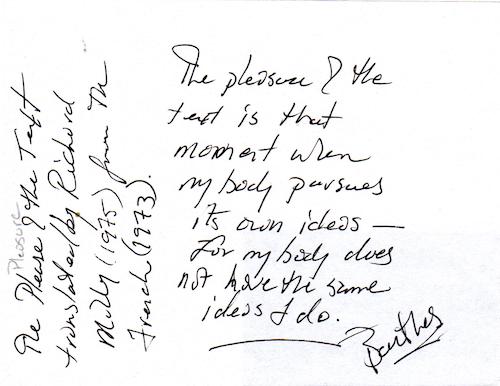 The pleasure & the
text is that
moment when
my body pursues
its own ideas —
for my body does
not have the same
ideas I do.
Barthes
Pleasure
The Please & the Text
translated by Richard
Milly (1975) from the
French (1973).